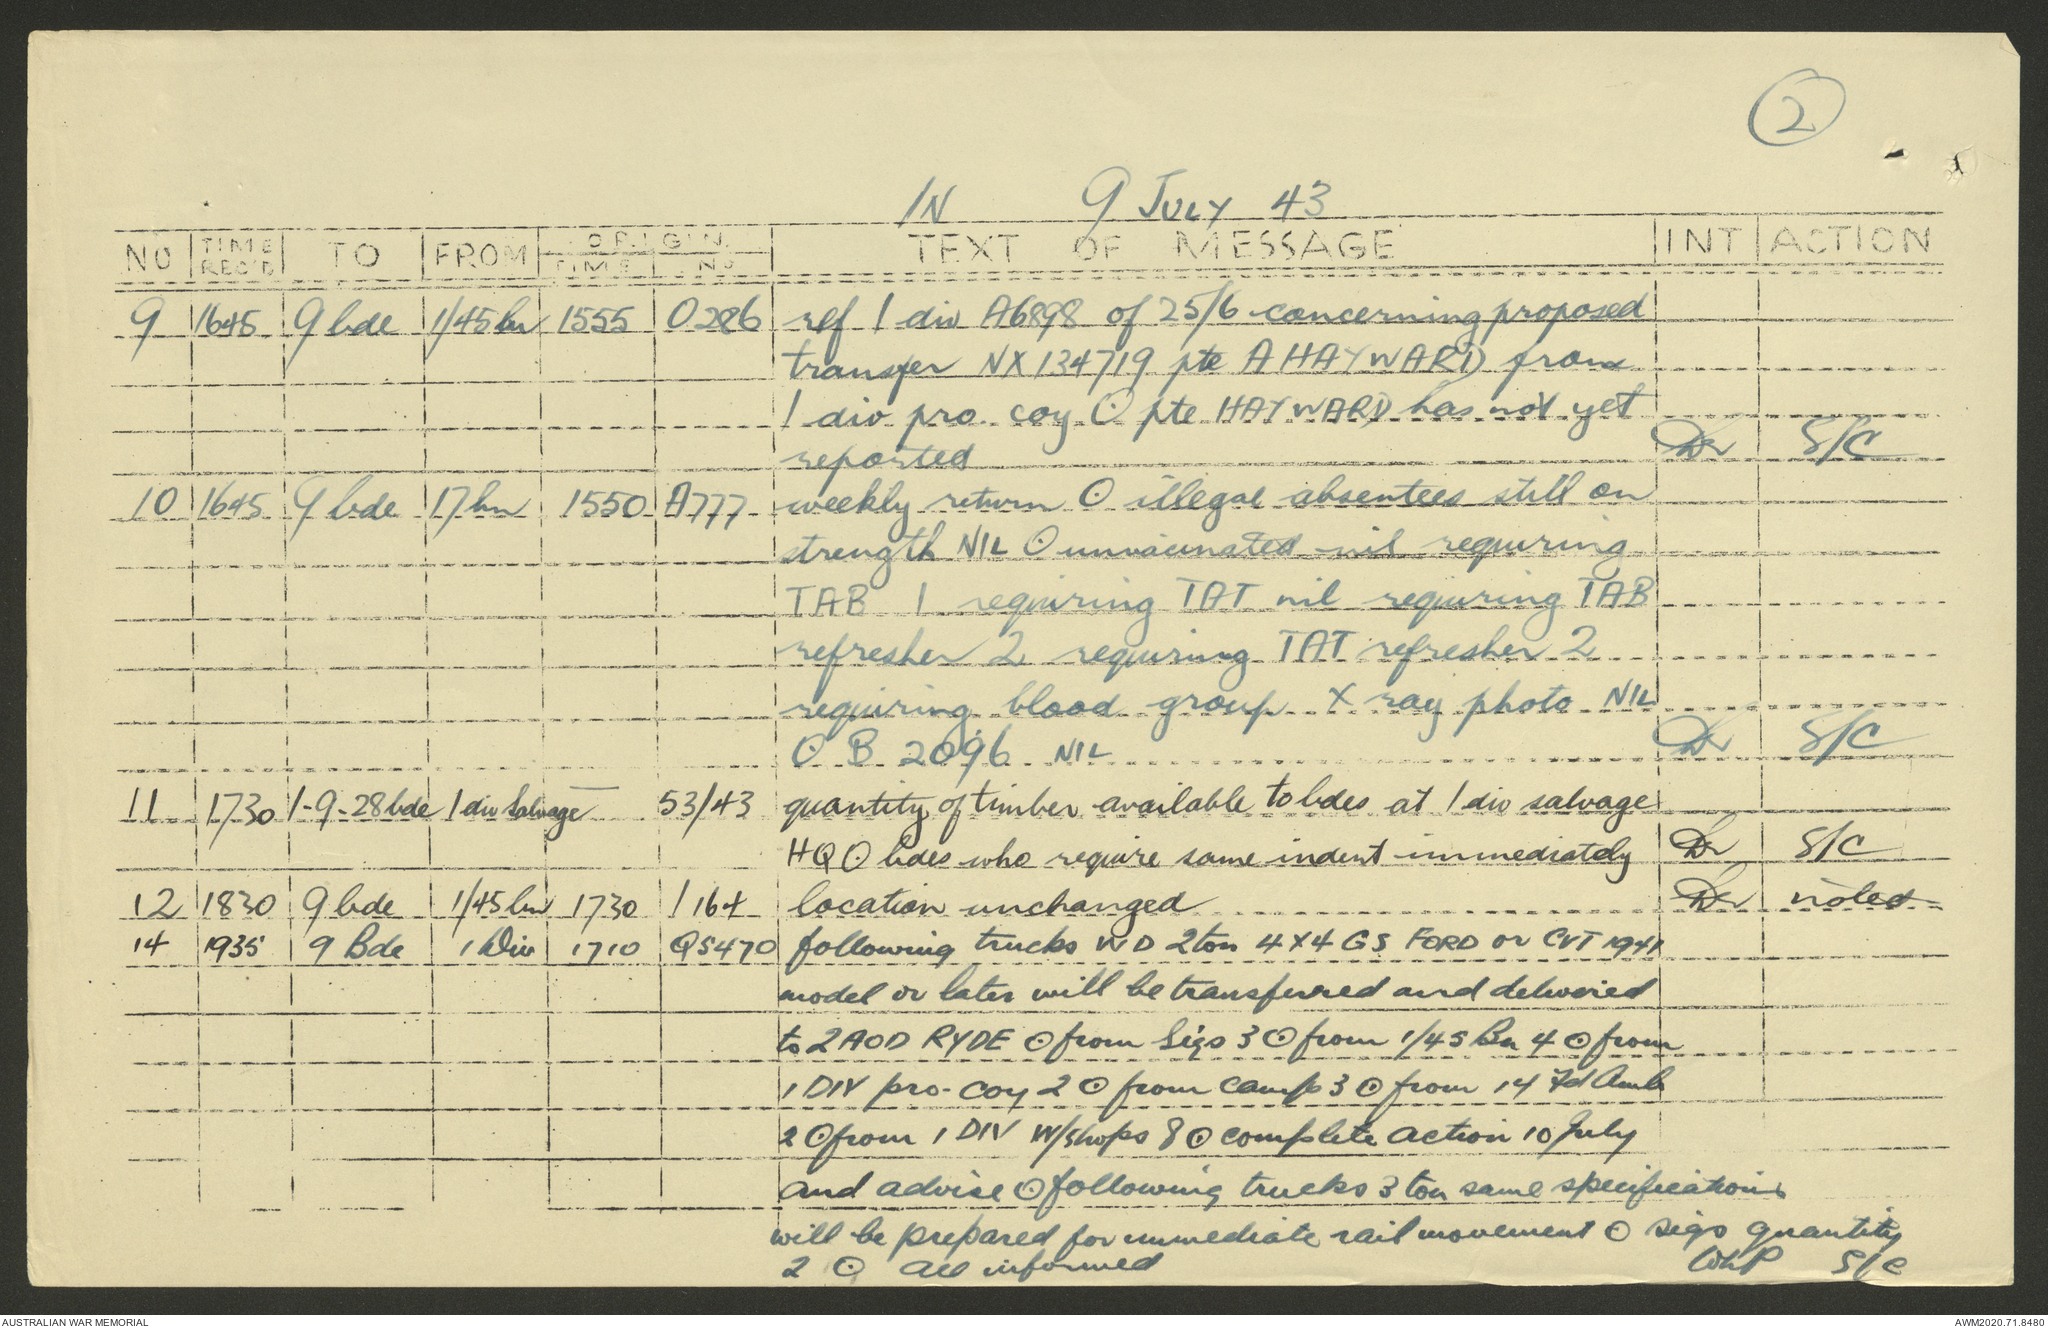 2
IN 9 JULY 43
NO TIME REC'D TO FROM ORIGIN TIME NO TEXT OF MESSAGE INT ACTION
9 1645 9 bde 1/45 bn 1555 O286 ref 1 div A6898 of 25/6 concerning proposed
transfer NX134719 pte A HAYWARD from
1 div pro. coy ⊙ pte HAYWARD has not yet
reported S/C
10 1645 9 bde 17 bn 1550 A777 weekly return ⊙ illegal absentees still on
strength NIL ⊙ unvaccinated nil requiring
TAB 1 requiring TAT nil requiring TAB
refresher 2 requiring TAT refresher 2
requiring blood group X ray photo NIL
⊙ B 2096 NIL S/C
11 1730 1-9-28 bde 1 div Salvage — 53/43 quantity of timber available to bdes at 1 div salvage
HQ ⊙ bdes who require same indent immediately S/C
12 1830 9 bde 1/45 bn 1730 I 164 location unchanged noted
14 1935 9 Bde 1 Div 1710 Q5470 following trucks WD 2 ton 4X4 GS FORD or CVT 1941
model or later will be transferred and delivered
to 2 AOD RYDE ⊙ from Sigs 3 ⊙ from 1/45 Bn 4 ⊙ from
1 DIV pro-coy 2 ⊙ from camp 3 ⊙ from 14 Fd Amb
2 ⊙ from 1 DIV W/shops 8 ⊙ complete action 10 July
and advise ⊙ following trucks 3 ton same specifications
will be prepared for immediate rail movement ⊙ sigs quantity
2 ⊙ all informed WhP S/C
AUSTRALIAN WAR MEMORIAL AWM2020.71.8480